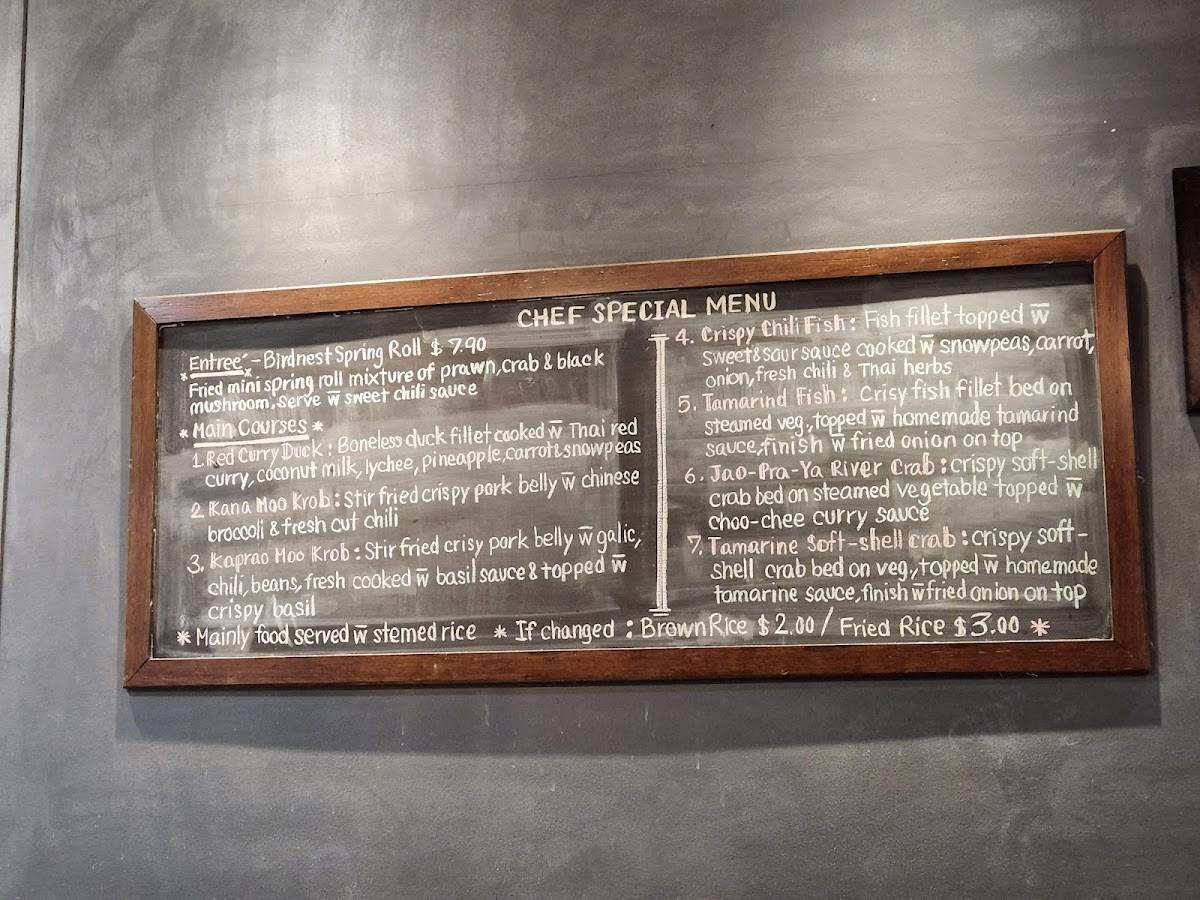 CHEF SPECIAL MENU
Entree´ - Birdnest Spring Roll $ 7.90
* Fried mini spring roll mixture of prawn, crab & black
mushroom. Serve w̅ sweet chili sauce
* Main Courses *
1. Red Curry Duck : Boneless duck fillet cooked w̅ Thai red
curry, coconut milk, lychee, pineapple, carrot & snowpeas
2. Kana Moo Krob : Stir fried crispy pork belly w̅ chinese
broccoli & fresh cut chili
3. Kaprao Moo Krob : Stir fried crisy pork belly w̅ galic,
chili, beans, fresh cooked w̅ basil sauce & topped w̅
crispy basil
4. Crispy Chili Fish : Fish fillet topped w̅
sweet & sour sauce cooked w̅ snowpeas, carrot,
onion, fresh chili & Thai herbs
5. Tamarind Fish : Crisy fish fillet bed on
steamed veg., topped w̅ homemade tamarind
sauce, finish w̅ fried onion on top
6. Jao-Pra-Ya River Crab : crispy soft-shell
crab bed on steamed vegetable topped w̅
choo-chee curry sauce
7. Tamarine Soft-shell crab : crispy soft-
shell crab bed on veg., topped w̅ homemade
tamarine sauce, finish w̅ fried onion on top
* Mainly food served w̅ stemed rice * If changed : Brown Rice $ 2.00 / Fried Rice $ 3.00 *